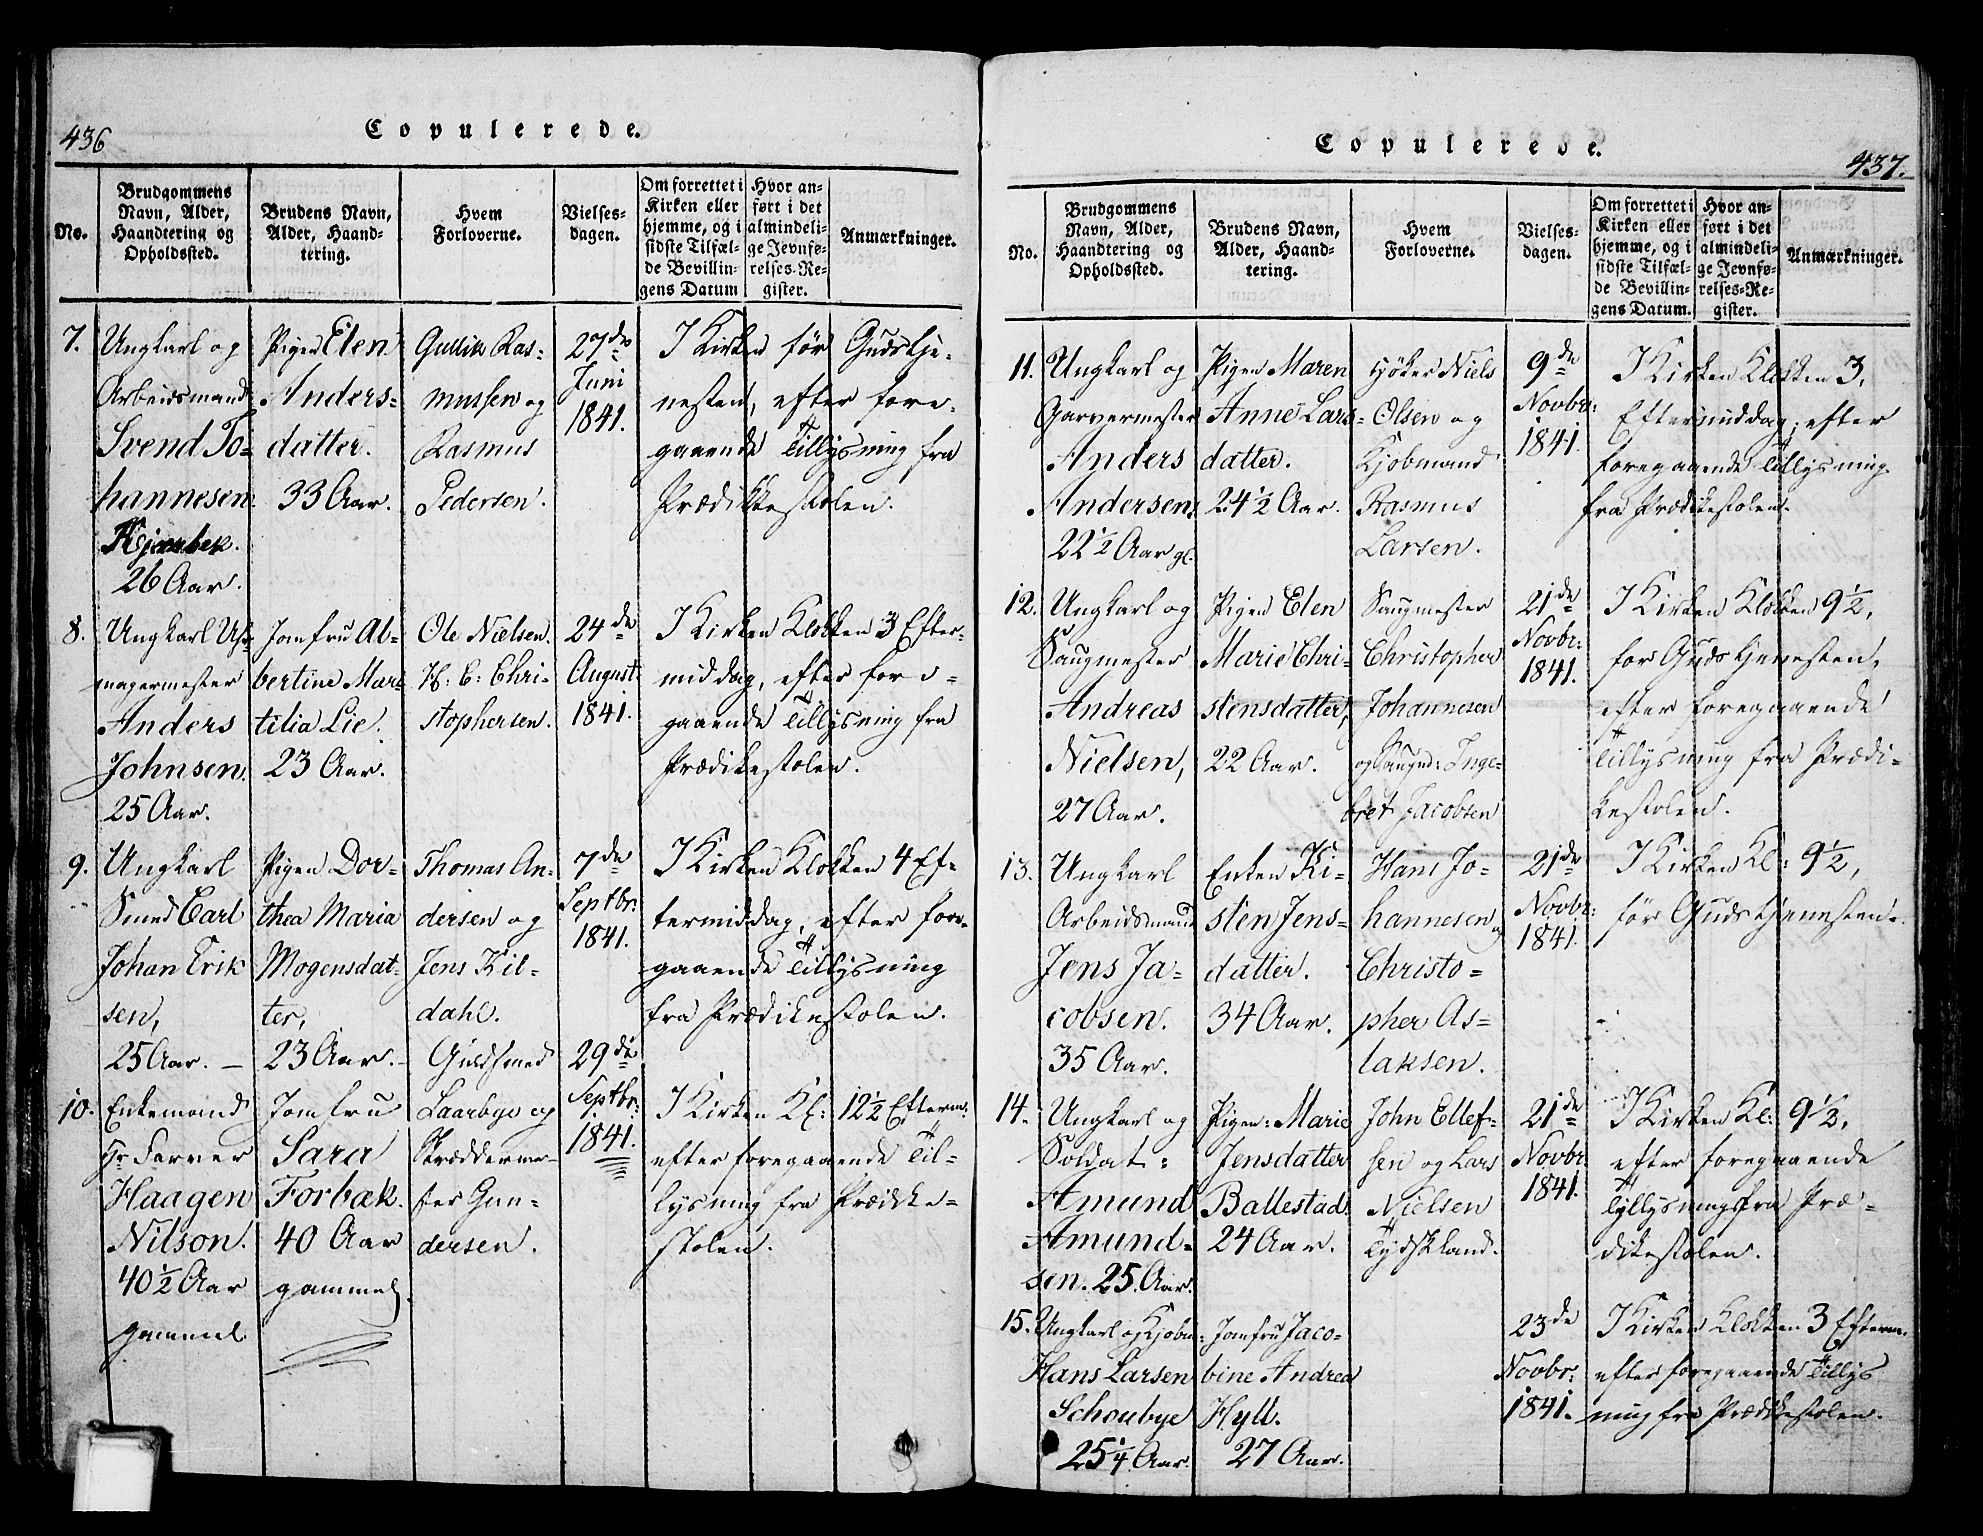 436
Copulerede.
No.
Brudgommens
Navn, Alder,
Haandtering og
Opholdssted.
Brudens Navn,
Alder, Haand-
tering.
Hvem
Forloverne.
Vielses-
dagen.
Om forrettet i
Kirken eller
hjemme, og i
sidste Tilfæl-
de Bevillin-
gens Datum
Hvor an-
ført i det
almindeli-
ge Jevnfø-
relses-Re-
gister.
Anmærkninger.
7.
Ungkarl og
Arbeidsmand
Svend Jo-
hannesen
26 Aar.
Pigen Elen
Anders-
datter.
33 Aar.
Gullik Ras-
mussen og
Rasmus
Pedersen.
27de
Juni
1841.
I Kirken før Gudstje-
nesten, efter fore-
gaaende Tillysning fra
Prædikkestolen.
8.
Ungkarl Uhr-
magermester
Anders
Johnsen.
25 Aar.
Jomfru Al-
bertine Mar-
tilia Lie.
23 Aar.
Ole Nielsen.
H: C: Chri-
stophersen.
24de
August
1841.
I Kirken Klokken 3 Efter-
middag, efter fore-
gaaende Tillysning fra
Prædikestolen.
9.
Ungkarl
Smed Carl
Johan Erik
sen,
25 Aar. –
Pigen Dor-
thea Maria
Mogensdat-
ter,
23 Aar. –
Thomas An-
dersen og
Jens Kil-
dahl.
7de
Septbr:
1841.
I Kirken Klokken 4 Ef-
termiddag, efter fore-
gaaende Tillysning
fra Prædikestolen.
10.
Enkemand
Hr Farver
Haagen
Nilson.
40 ½ Aar
gammel.
Jomfru
Sara
Forbæk.
40 Aar
gammel.
Guldsmed
Laarbye og
Skræddermes-
ter Gun-
dersen.
29de
Septbr:
1841.
I Kirken Kl: 12½ Efterm:
efter foregaaende Til-
lysning fra Prædikke-
stolen.
Copulerede.
437.
No.
Brudgommens
Navn, Alder,
Haandtering og
Opholdssted.
Brudens Navn,
Alder, Haand-
tering.
Hvem
Forloverne.
Vielses-
dagen.
Om forrettet i
Kirken eller
hjemme, og i
sidste Tilfæl-
de Bevillin-
gens Datum.
Hvor an-
ført i det
almindeli-
ge Jevnfø-
relses-Re-
gister.
Anmærkninger.
11.
Ungkarl og
Garvermester
Anders
Andersen,
22 ½ Aar gl.
Pigen Maren
Anne Lars-
datter.
24 ½ Aar.
Høker Niels
Olsen og
Kjøbmand
Rasmus
Larsen.
9de
Novbr:
1841.
I Kirken Klokken 3,
Eftermiddag, efter
foregaaende Tillysning
fra Prædikestolen.
12.
Ungkarl og
Saugmester
Andreas
Nielsen,
27 Aar.
Pigen Elen
Marie Chri-
stensdatter,
22 Aar.
Saugmester
Christopher
Johannesen
og Saugm: Inge-
bret Jacobsen
21de
Novbr:
1841.
I Kirken Klokken 9½,
for Gudstjenesten,
efter foregaaende
Tillysning fra Prædi-
kestolen.
13.
Ungkarl
Arbeidsmand
Jens Ja-
cobsen.
35 Aar.
Enken Ki-
sten Jens-
datter.
34 Aar.
Hans Jo-
hannesen og
Christo-
pher As-
laksen.
21de
Novbr:
1841.
I Kirken Kl: 9½,
før Gudstjenesten.
14.
Ungkarl og
Soldat:
Amund
Amund-
sen. 25. Aar.
Pigen: Marie
Jensdatter
Ballestad.
24 Aar.
John Ellef-
sen og Lars
Nielsen
Tydskland.
21de
Novbr:
1841.
I Kirken Kl: 9½,
efter foregaaende
Tyllysning fra Præ-
dikestolen.
15.
Ungkarl og Kjøbm:
Hans Larsen
Schoubye
25 ¼ Aar.
Jomfru Jaco-
bine Andrea
Hyll.
27 Aar.
23de
Novbr:
1841.
I Kirken Klokken 3 Efterm.
efter foregaaende Tillys
ning fra Prædikestolen.